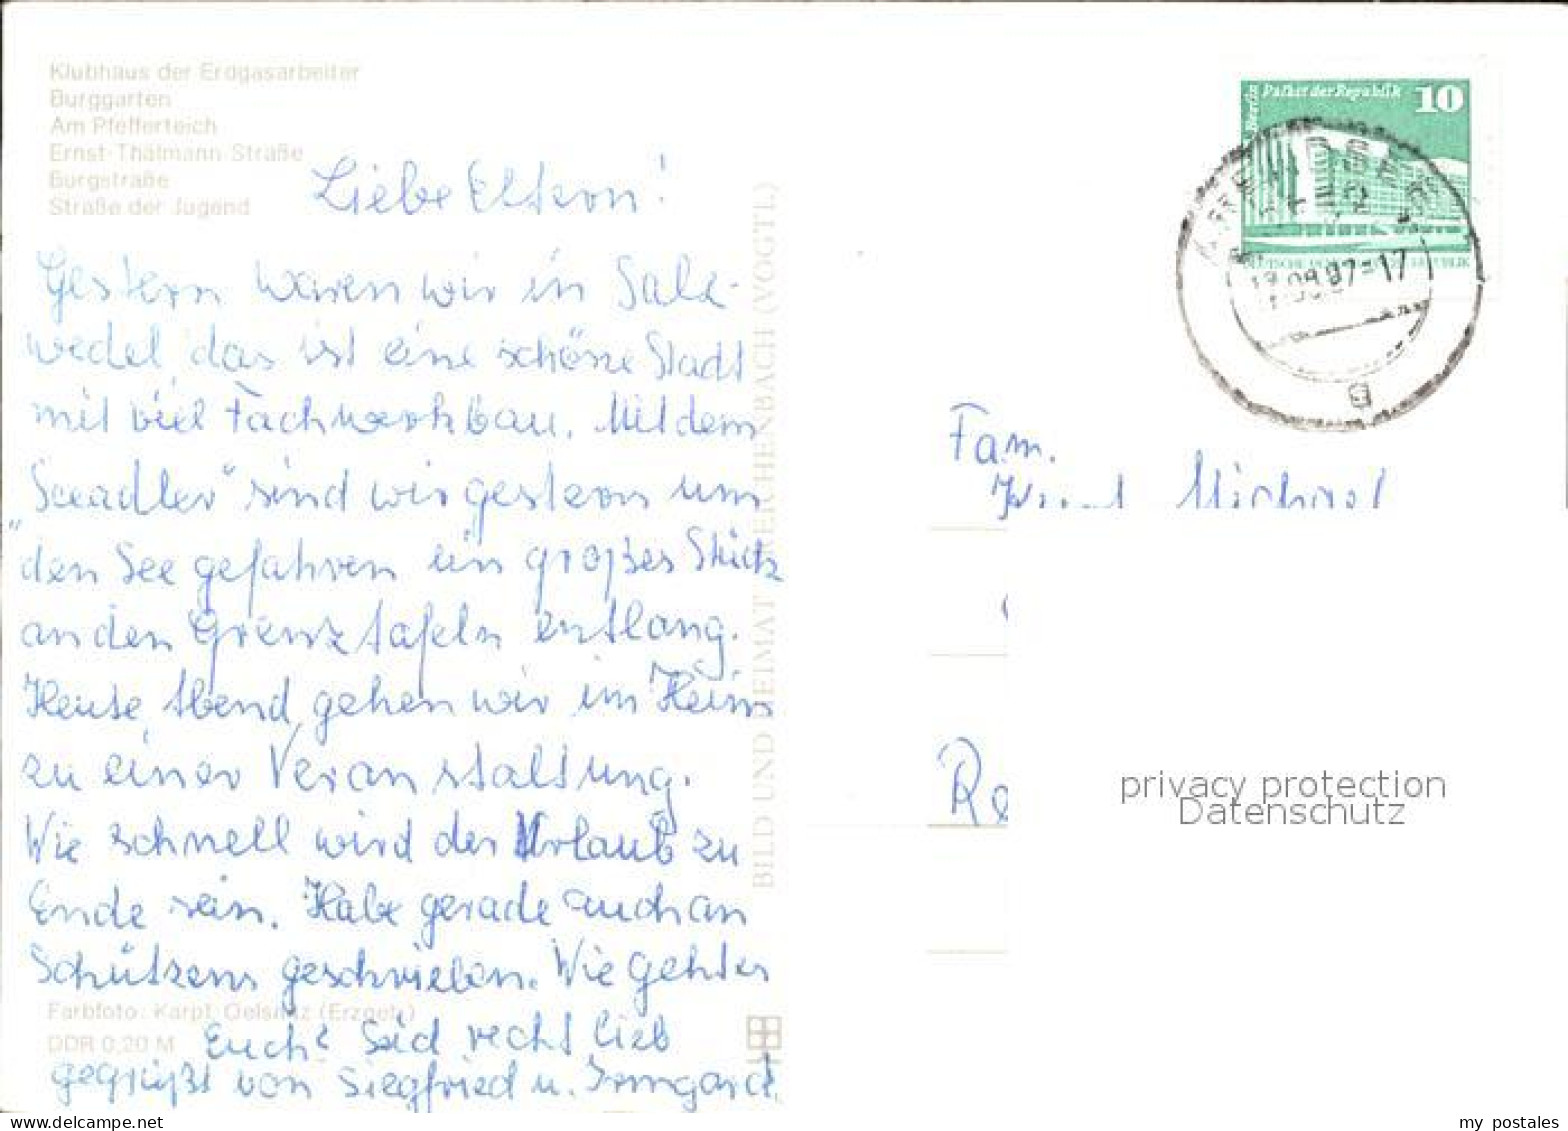 Klubhaus der Erdgasarbeiter
Burggarten
Am Pfefferteich
Ernst-Thälmann-Straße
Burgstraße
Straße der Jugend
Liebe Eltern!
Gestern waren wir in Salz-
wedel, das ist eine schöne Stadt
mit viel Fachwerkbau. Mit dem
"Seeadler" sind wir gestern um
den See gefahren ein großes Stück
an den Grenztafeln entlang.
Heute Abend gehen wir im Heim
zu einer Veranstaltung.
Wie schnell wird der Urlaub zu
Ende sein. Habe gerade auch an
Schützens geschrieben. Wie geht es
Euch? Seid recht lieb
gegrüßt von Siegfried u. Irmgard.
Farbfoto: Karpf, Oelsnitz (Erzgeb.)
DDR 0,20 M
BILD UND HEIMAT REICHENBACH (VOGTL)
Berlin Palast der Republik 10
DEUTSCHE DEMOKRATISCHE REPUBLIK
ARENDSEE
.09.87-17
g
Fam.
Michael
Re
privacy protection
Datenschutz
my postales